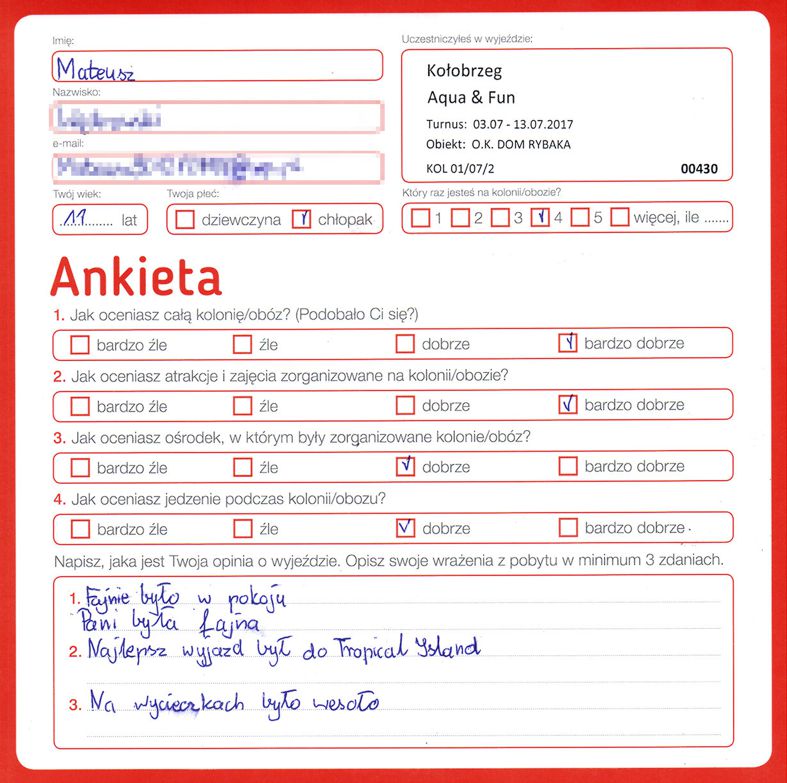 Imię:
Mateusz
Nazwisko:
e-mail:
Twój wiek:
11 lat
Twoja płeć:
dziewczyna chłopak
Uczestniczyłeś w wyjeździe:
Kołobrzeg
Aqua & Fun
Turnus: 03.07 - 13.07.2017
Obiekt: O.K. DOM RYBAKA
KOL 01/07/2 00430
Który raz jesteś na kolonii/obozie?
1 2 3 4 5 więcej, ile .......
Ankieta
1. Jak oceniasz całą kolonię/obóz? (Podobało Ci się?)
bardzo źle źle dobrze bardzo dobrze
2. Jak oceniasz atrakcje i zajęcia zorganizowane na kolonii/obozie?
bardzo źle źle dobrze bardzo dobrze
3. Jak oceniasz ośrodek, w którym były zorganizowane kolonie/obóz?
bardzo źle źle dobrze bardzo dobrze
4. Jak oceniasz jedzenie podczas kolonii/obozu?
bardzo źle źle dobrze bardzo dobrze
Napisz, jaka jest Twoja opinia o wyjeździe. Opisz swoje wrażenia z pobytu w minimum 3 zdaniach.
1. Fajnie było w pokoju
Pani była fajna
2. Najlepsz wyjazd był do Tropical Island
3. Na wycieczkach było wesoło